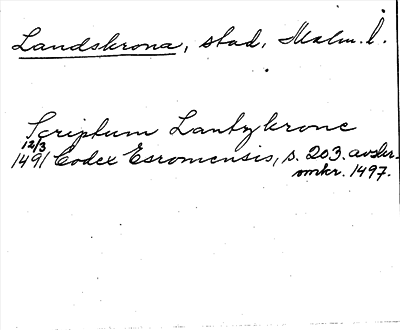 Landskrona, stad, Malm. l.
Scriptum Lantzkrone
12/3
1491 Codex Esromensis, s. 203. avskr.
omkr. 1497.